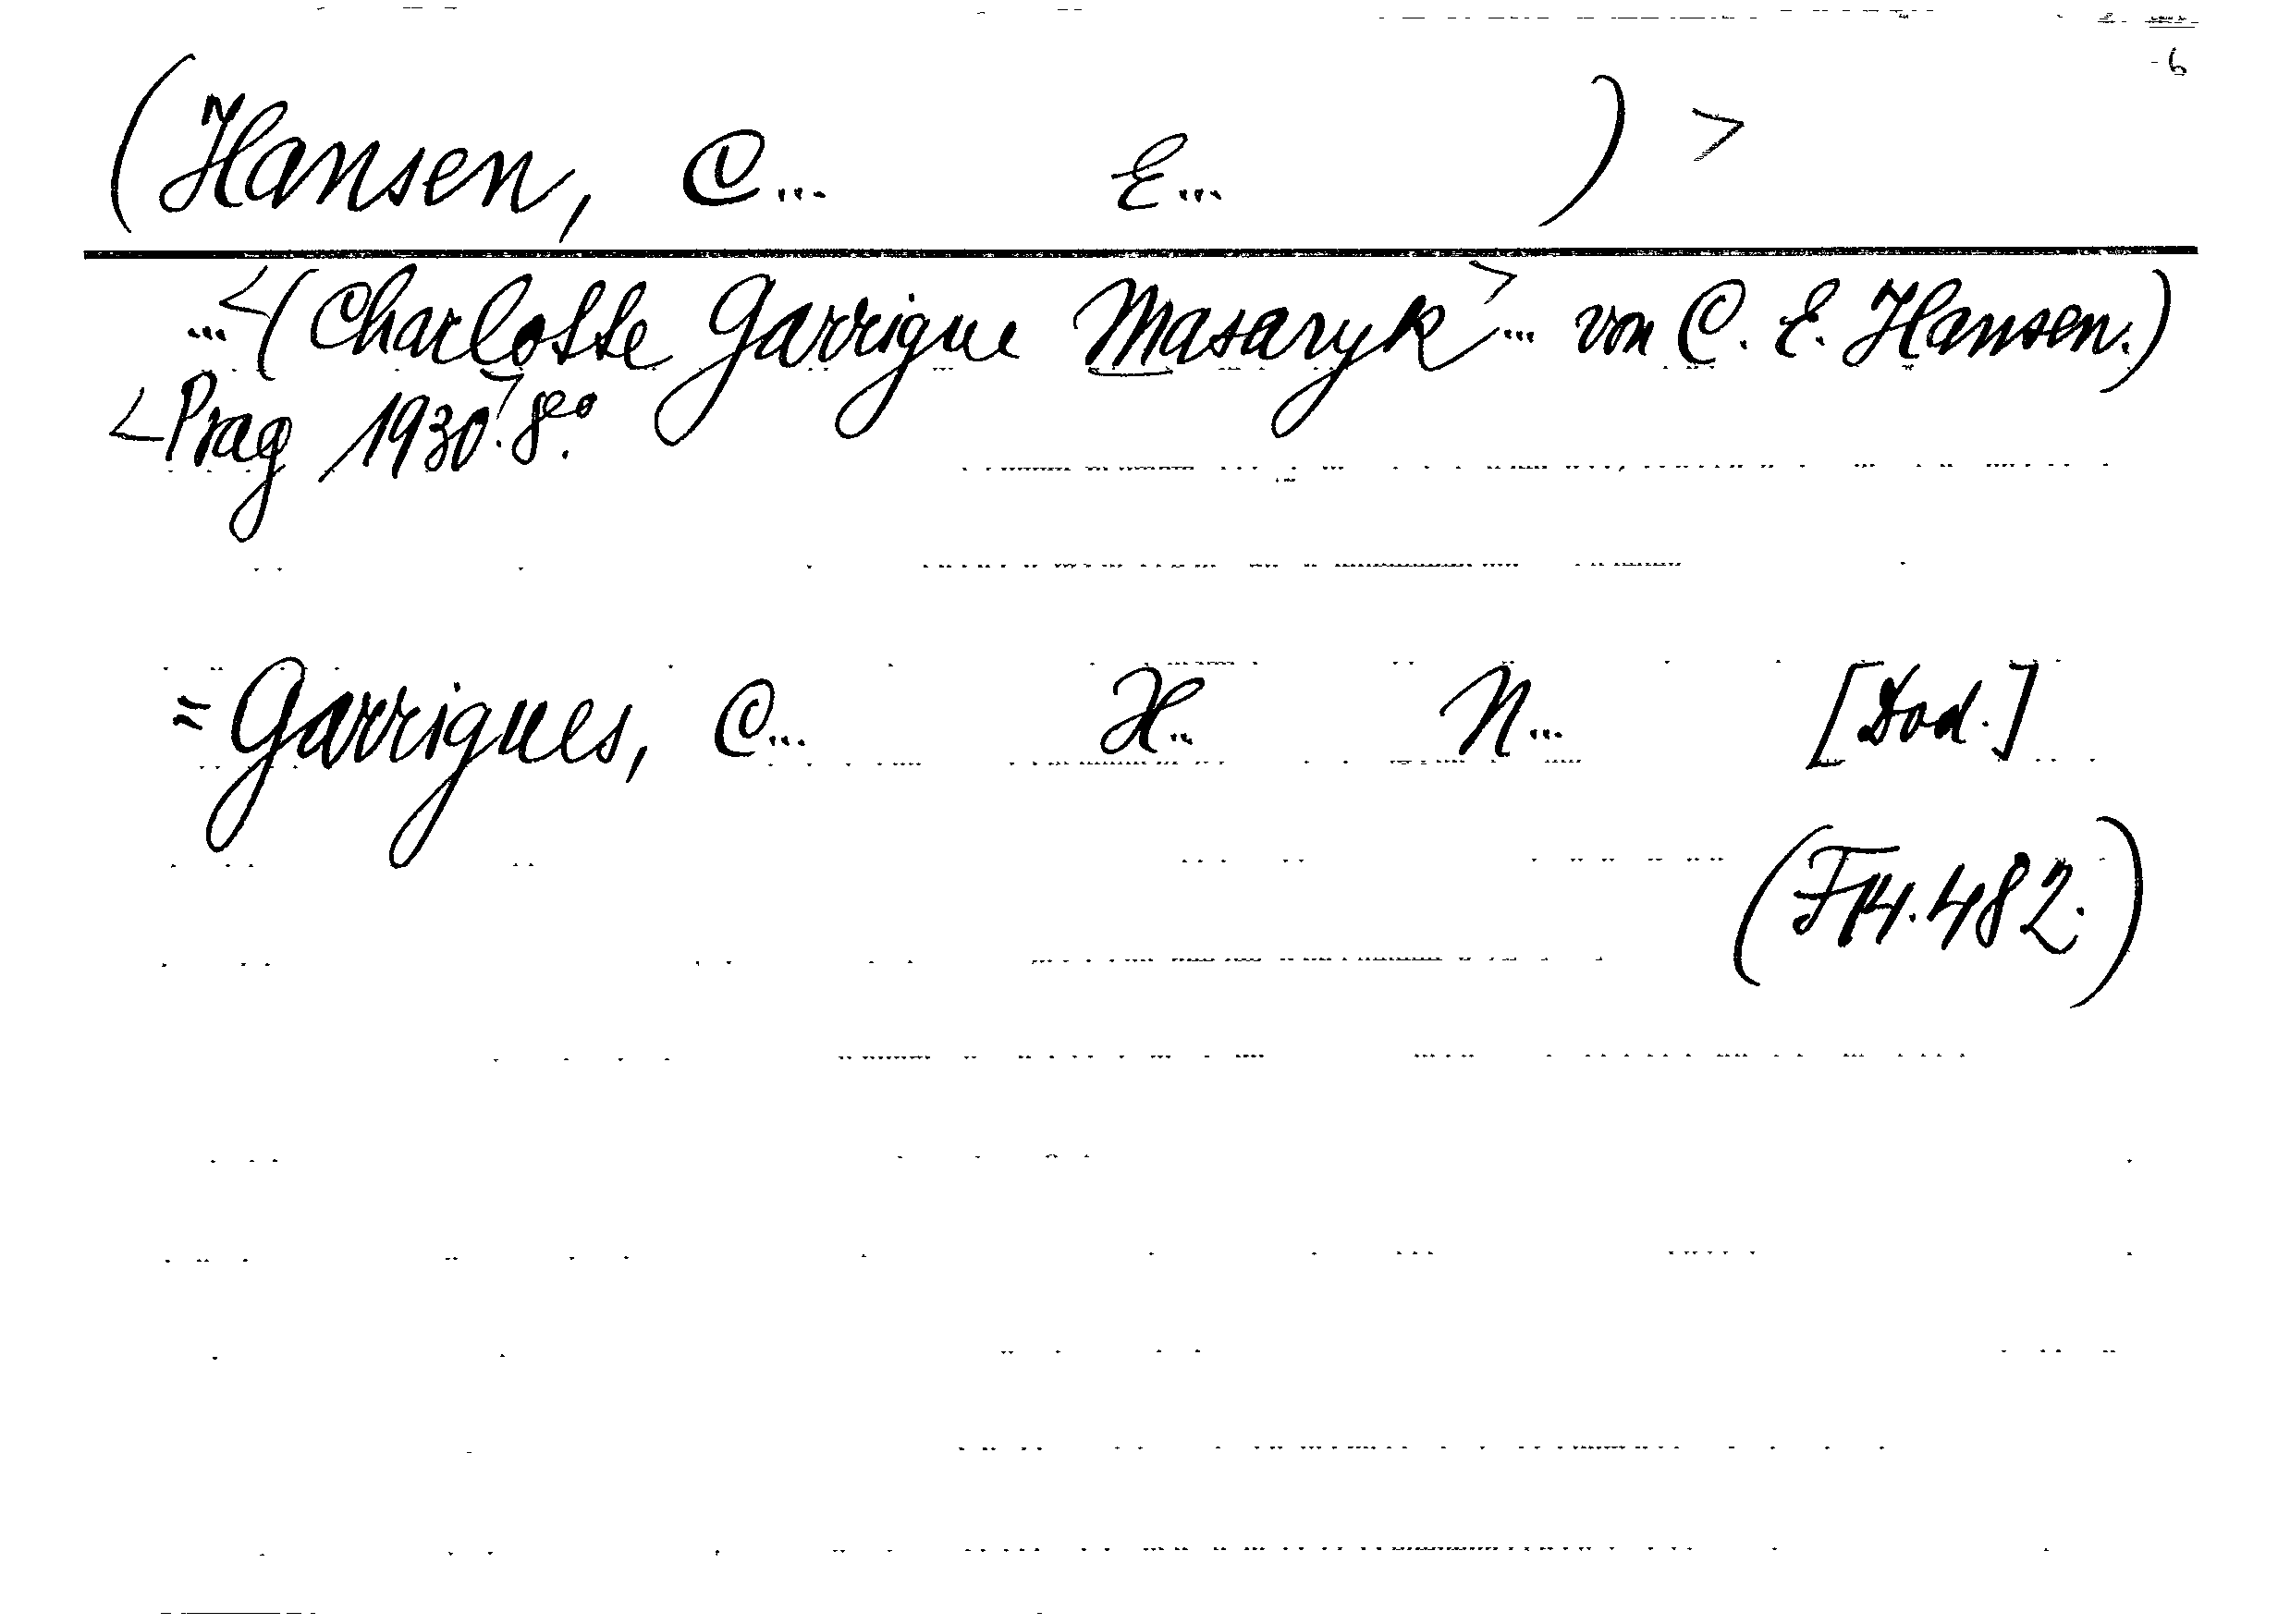 6
(Hansen, C... E... ) >
...<(Charlotte Garrigue Masaryk>... von C. E. Hansen.)
<Prag 1930>. 8°°.
= Garrigues, C... H... N... [Dod.]
(F14.482.)